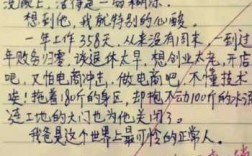 没成上，活得是一场糊
想到他，我就特别的心酸。
一年工作358天，从来没有周末，一到过
年财务归零，谈退休太早，想创业太老，开店
吧，又怕电商冲击，做电商吧，不懂技术
娄！拖着180斤的身区，却抱不动100斤的水泥
连工地的大门也为他关闭了。
我爸是这个世界上最可怜的正常人。